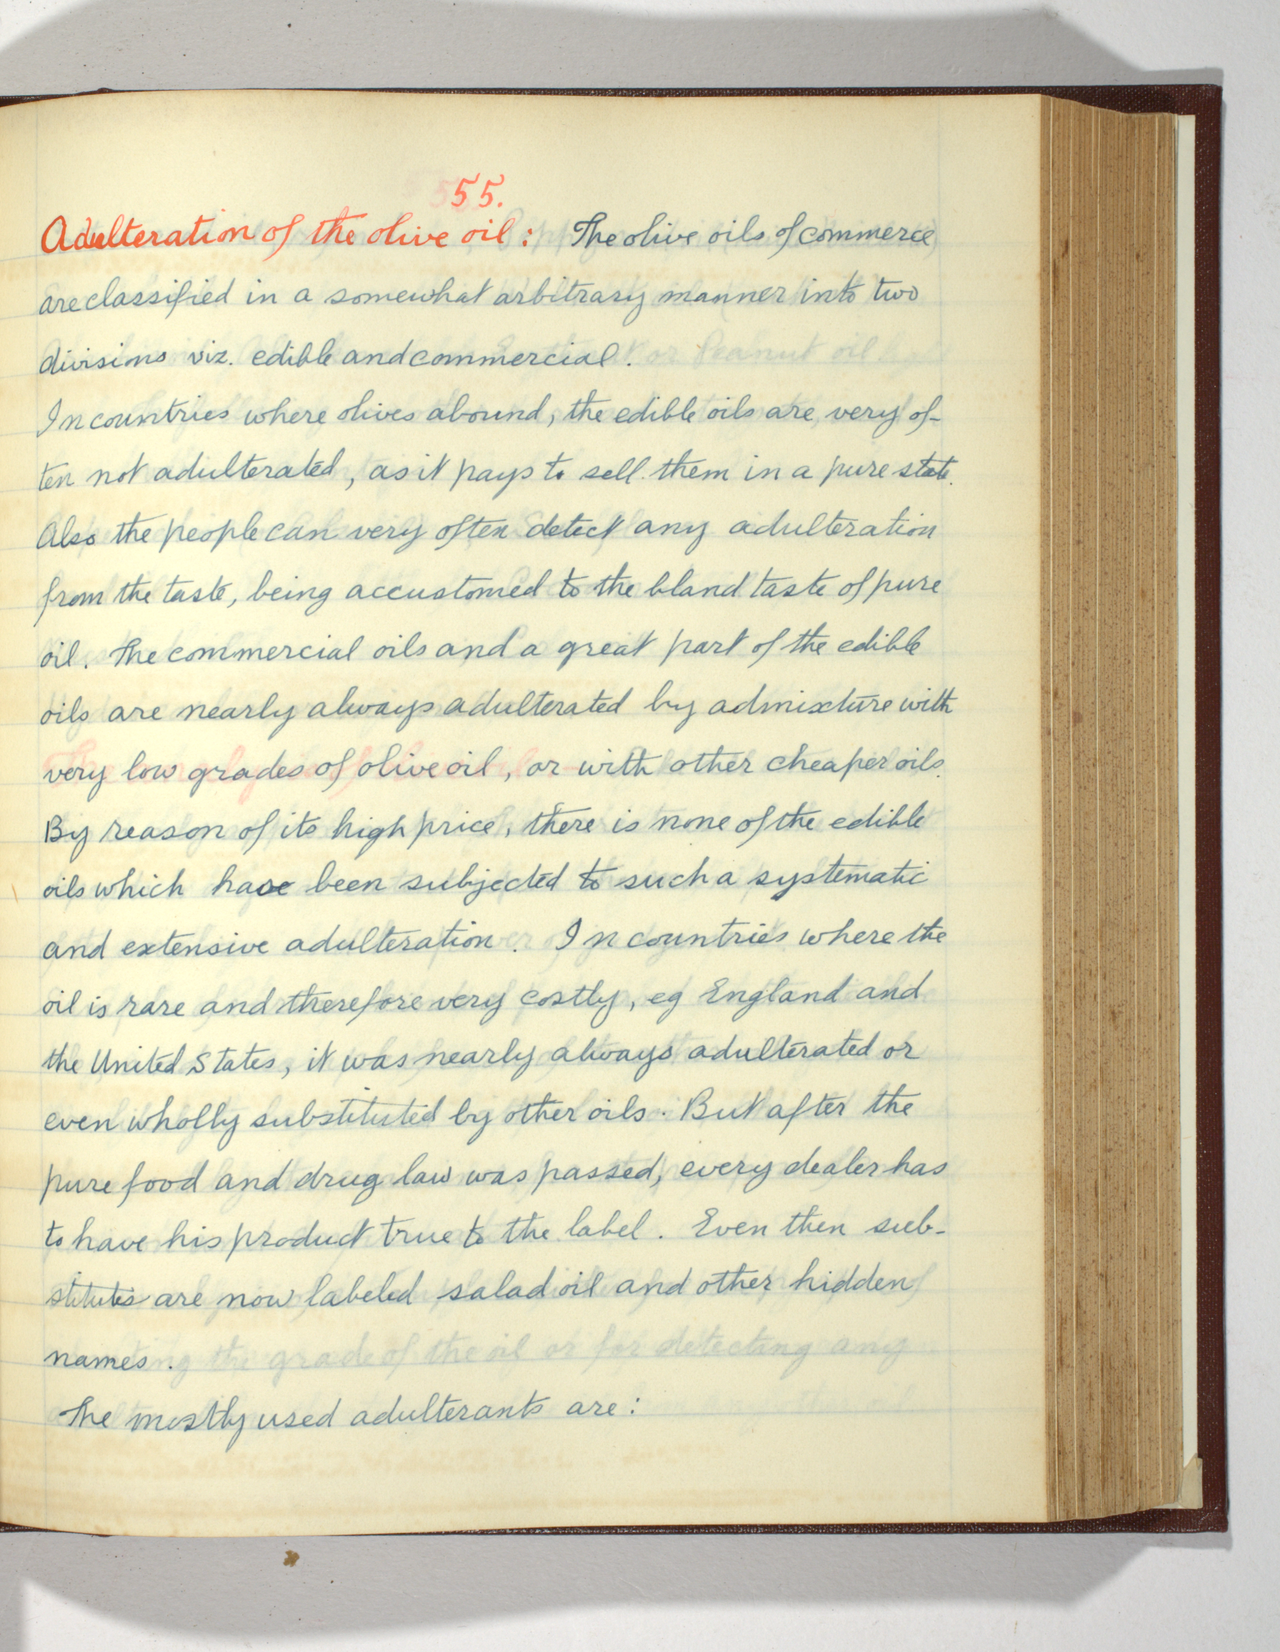 55.
Adulteration of the olive oil: The olive oils of commerce
are classified in a somewhat arbitrary manner into two
divisions viz. edible and commercial.
In countries where olives abound, the edible oils are very of-
ten not adulterated, as it pays to sell them in a pure state.
Also the people can very often detect any adulteration
from the taste, being accustomed to the bland taste of pure
oil. The commercial oils and a great part of the edible
oils are nearly always adulterated by admixture with
very low grades of olive oil, or with other cheaper oils.
By reason of its high price, there is none of the edible
oils which have been subjected to such a systematic
and extensive adulteration. In countries where the
oil is rare and therefore very costly, eg England and
the United States, it was nearly always adulterated or
even wholly substituted by other oils. But after the
pure food and drug law was passed, every dealer has
to have his product true to the label. Even then sub-
stitutes are now labeled salad oil and other hidden
names.
The mostly used adulterants are: